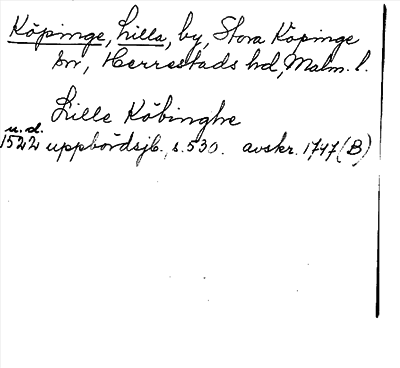 Köpinge, Lilla, by, Stora Köpinge
sn, Herrestads hd, Malm. l.
Lille Köbinghe
u. d.
1522 uppbördsjb., s. 530. avskr. 1747 (B)